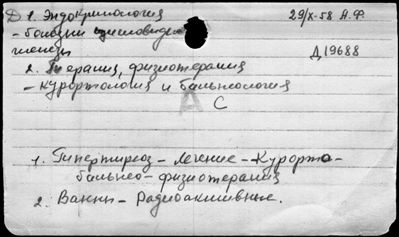 D 1. Эндокринология 29/X-58 А.Ф.
- болезни щитовидной
железы Д19688
2. Терапия, физиотерапия
- курортология и бальнеология
А
С
1. Гипертиреоз - лечение - курорто-
бальнео-физиотерапия
2. Ванны - радиоактивные.